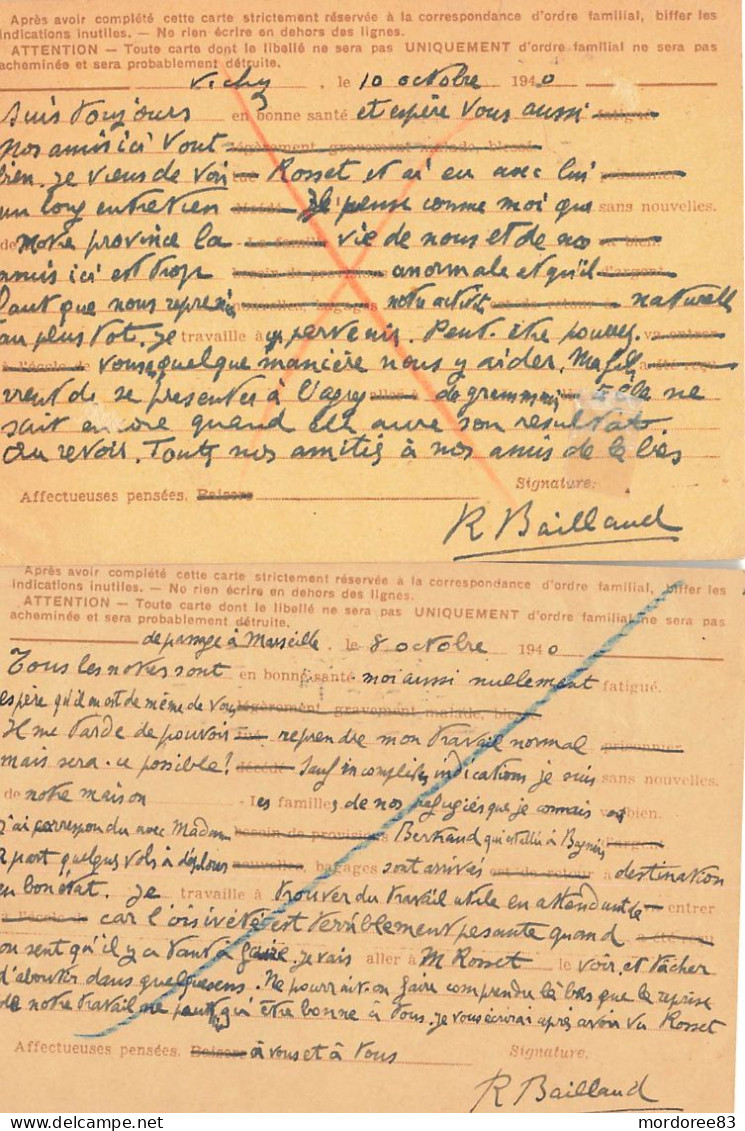 Après avoir complété cette carte strictement réservée à la correspondance d'ordre familial, biffer les
indications inutiles. — Ne rien écrire en dehors des lignes.
ATTENTION — Toute carte dont le libellé ne sera pas UNIQUEMENT d'ordre familial ne sera pas
acheminée et sera probablement détruite.
Vichy, le 10 octobre 1940
Suis toujours en bonne santé et espère vous aussi fatigué
Nos amis ici vont légèrement, gravement malade, blessé
bien. Je viens de voir tué Rosset et ai eu avec lui prisonnier
un long entretien décédé Il pense comme moi que sans nouvelles.
de notre province la La famille vie de nous et de nos va bien.
amis ici est trop besoin de provisions anormale et qu'il d'argent
faut que nous reprenions nouvelles, bagages notre activité est de retour à naturelle
au plus tôt. Je travaille à y parvenir. Peut-être pouvez va entrer
à l'école de vous quelque manière nous y aider. Ma fille a été reçu
vient de se présenter à l'agreg aller à de grammaire elle ne
sait encore quand elle aura son résultat.
Au revoir. Toutes nos amitiés à nos amis de là bas
Affectueuses pensées. Baisers
Signature.
R Baillaud
Après avoir complété cette carte strictement réservée à la correspondance d'ordre familial, biffer les
indications inutiles. — Ne rien écrire en dehors des lignes.
ATTENTION — Toute carte dont le libellé ne sera pas UNIQUEMENT d'ordre familial ne sera pas
acheminée et sera probablement détruite.
de passage à Marseille le 8 octobre 1940
Tous les nôtres sont en bonne santé moi aussi nullement fatigué.
espère qu'il en est de même de vous légèrement, gravement malade, blessé
Il me tarde de pouvoir tué reprendre mon travail normal prisonnier
mais sera-ce possible? décédé Sauf incomplètes indications je suis sans nouvelles.
de notre maison Les familles de nos réfugiés que je connais vont bien.
j'ai correspondu avec Madame besoin de provisions Bertrand qui est allée à d'argent
à part quelques vols à déplorer nouvelles, bagages sont arrivés est de retour à destination
en bon état. Je travaille à trouver du travail utile en attendant de va entrer
à l'école de car l'oisiveté est terriblement pesante quand a été reçu
on sent qu'il y a tant à faire. je vais aller à M Rosset le voir, et tâcher
d'aboutir dans quelque sens. Ne pourrait-on faire comprendre là bas que la reprise
de notre travail ne peut qu'être bonne à tous. je vous écrirai après avoir vu Rosset
Affectueuses pensées. Baisers à vous et à tous
Signature.
R Baillaud
mordoree83